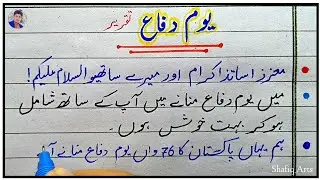 یوم دفاع تقریر
معزز اساتذا کرام اور میرے ساتھیو السلام علیکم!
میں یوم دفاع منانے میں آپ کے ساتھ شامل
ہو کر بہت خوش ہوں۔
ہم یہاں پاکستان کا 76 واں یوم دفاع منانے آ
Shafiq Arts